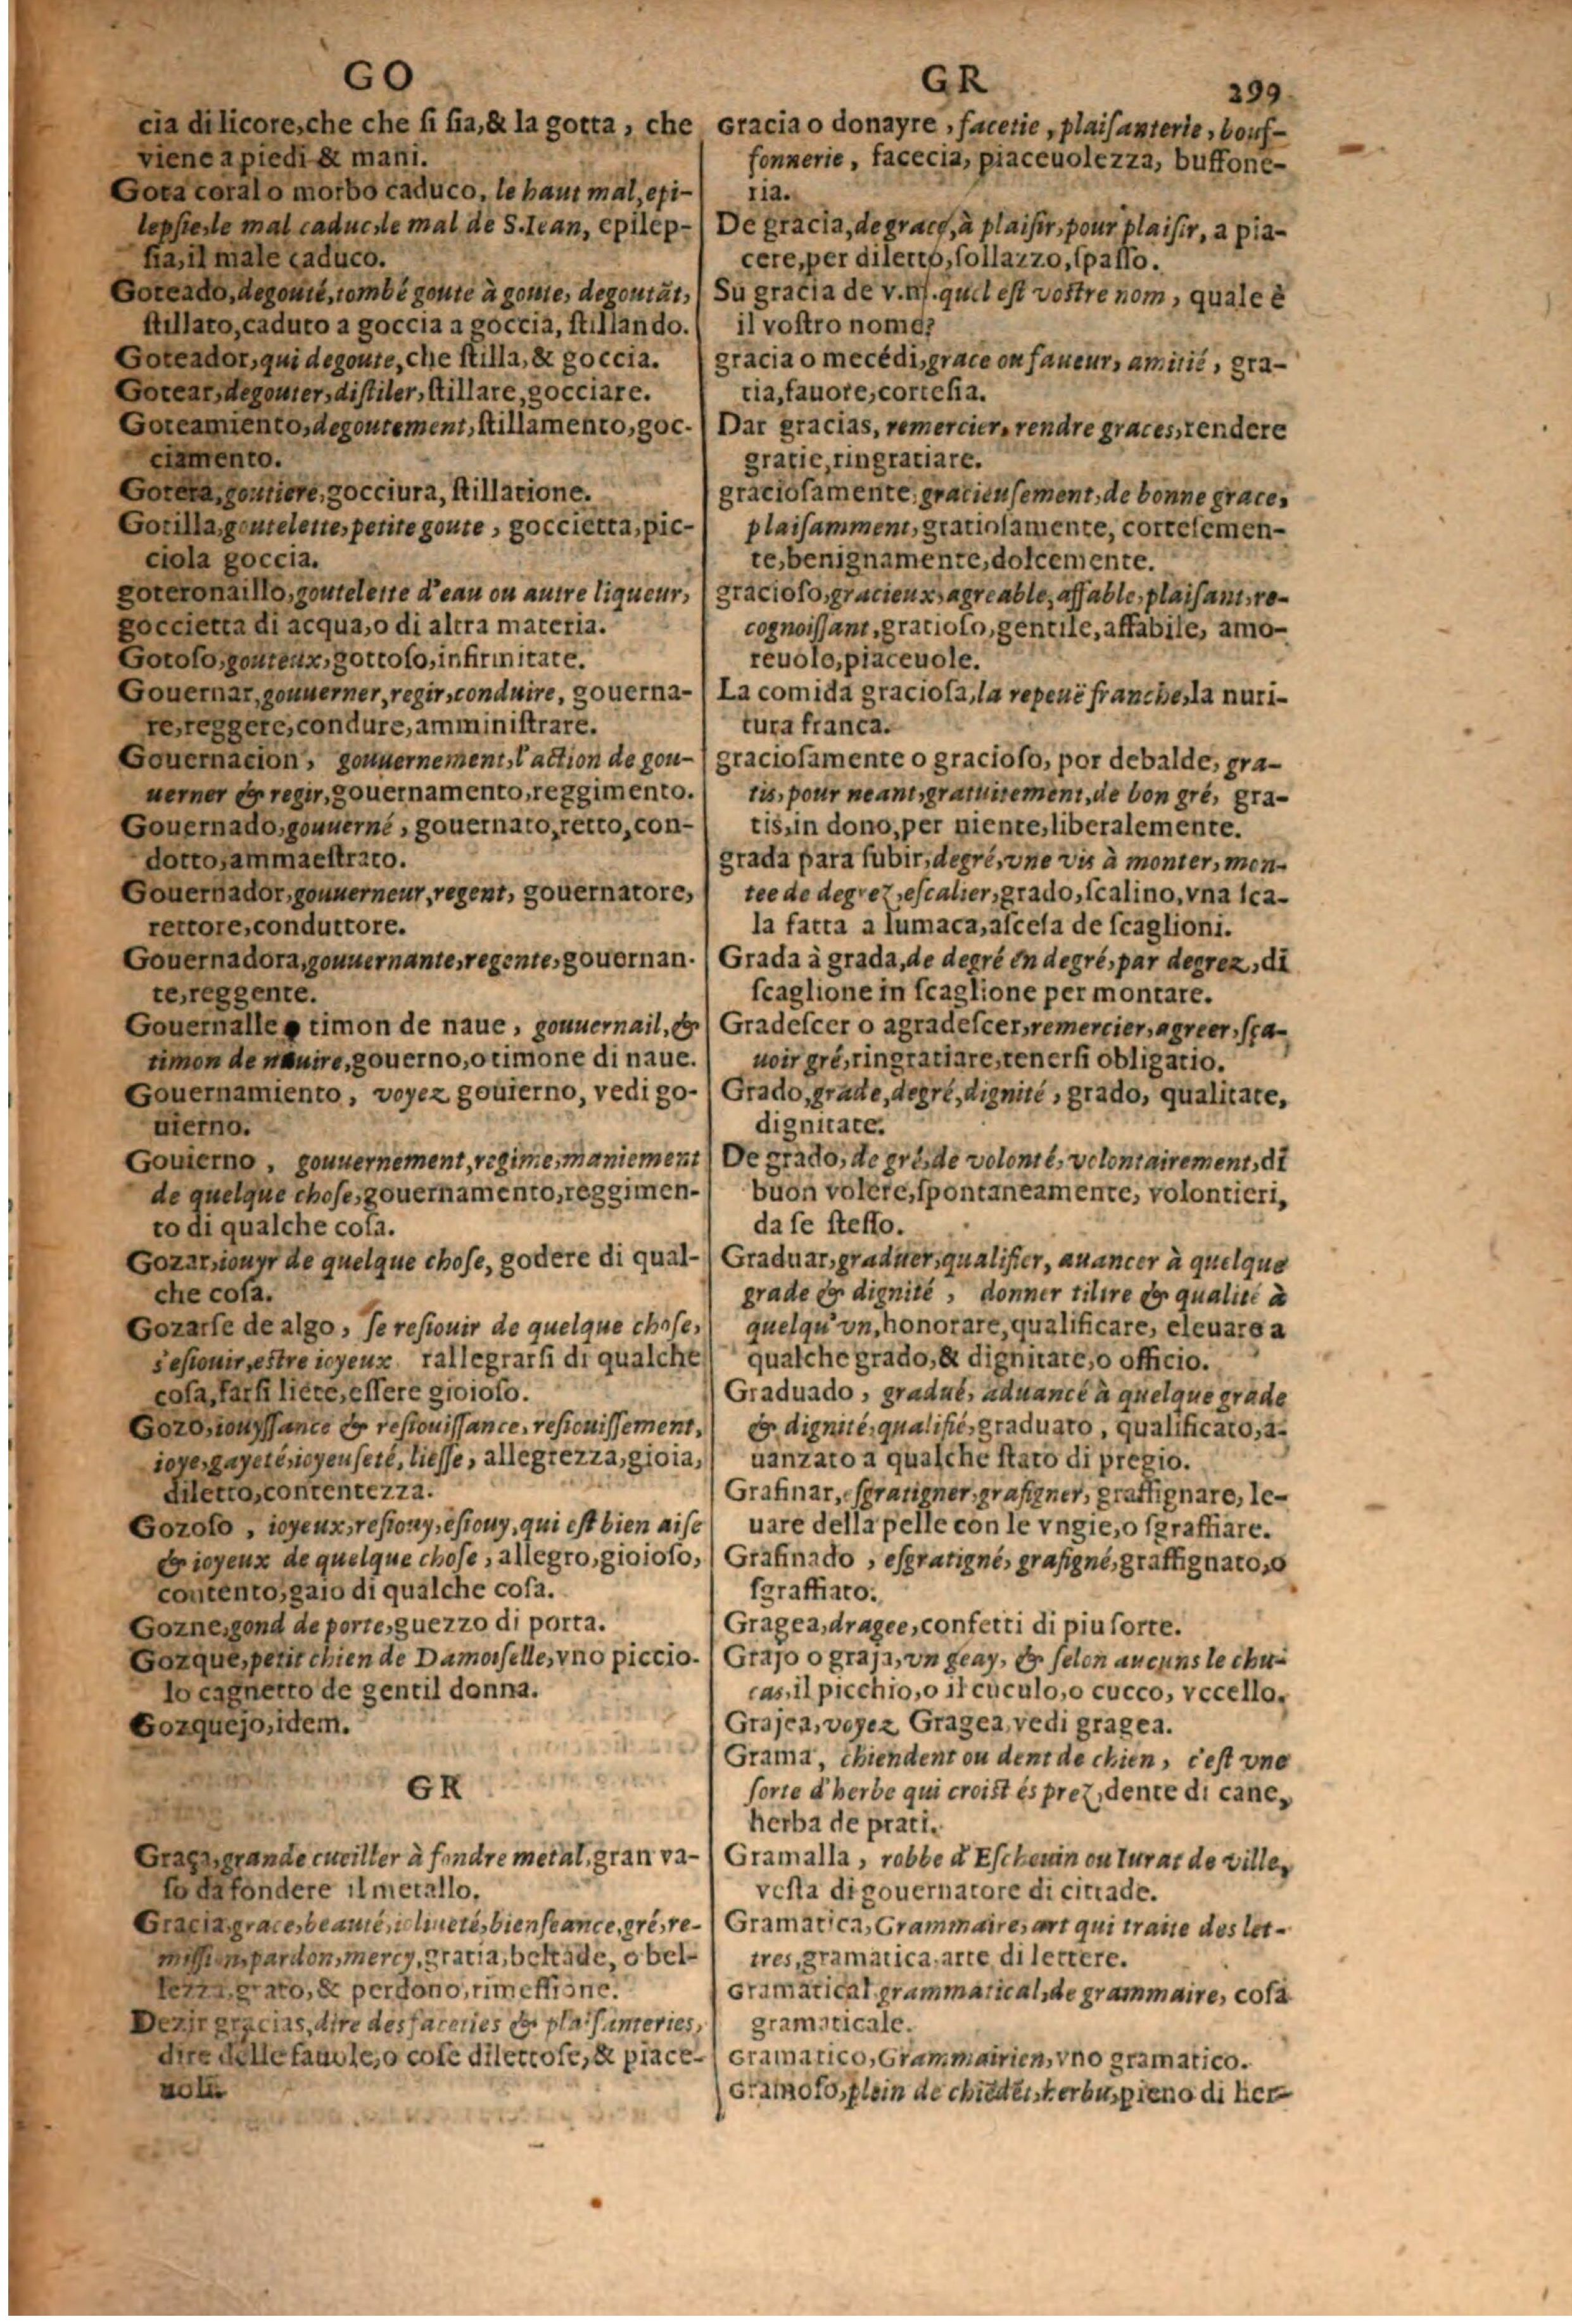 GO
cia di licore, che che ſi ſia, & la gotta, che
viene a piedi & mani.
Gota coral o morbo caduco, le haut mal, epi-
lepſie, le mal caduc, le mal de S. Iean, epilep-
ſia, il male caduco.
Goteado, degouté, tombé goute à goute, degoutãt,
ſtillato, caduto a goccia a goccia, ſtillando.
Goteador, qui degoute, che ſtilla, & goccia.
Gotear, degouter, diſtiler, ſtillare, gocciare.
Goteamiento, degoutement, ſtillamento, goc-
ciamento.
Gotera, goutiere, gocciura, ſtillatione.
Gotilla, goutelette, petite goute, goccietta, pic-
ciola goccia.
goteronaillo, goutelette d'eau ou autre liqueur,
goccietta di acqua, o di altra materia.
Gotoſo, gouteux, gottoſo, infirmitate.
Gouernar, gouuerner, regir, conduire, gouerna-
re, reggere, condure, amminiſtrare.
Gouernacion, gouuernement, l'action de gou-
uerner & regir, gouernamento, reggimento.
Gouernado, gouuerné, gouernato, retto, con-
dotto, ammaeſtrato.
Gouernador, gouuerneur, regent, gouernatore,
rettore, conduttore.
Gouernadora, gouuernante, regente, gouernan-
te, reggente.
Gouernalle o timon de naue, gouuernail, &
timon de nauire, gouerno, o timone di naue.
Gouernamiento, voyez gouierno, vedi go-
uierno.
Gouierno, gouuernement, regime, maniement
de quelque choſe, gouernamento, reggimen-
to di qualche coſa.
Gozar, iouyr de quelque choſe, godere di qual-
che coſa.
Gozarſe de algo, ſe reſiouir de quelque choſe,
s'eſiouir, eſtre ioyeux rallegrarſi di qualche
coſa, farſi liete, eſſere gioioſo.
Gozo, iouyſſance & reſiouiſſance, reſiouiſſement,
ioye, gayeté, ioyeuſeté, lieſſe, allegrezza, gioia,
diletto, contentezza.
Gozoſo, ioyeux, reſiouy, eſiouy, qui eſt bien aiſe
& ioyeux de quelque choſe, allegro, gioioſo,
contento, gaio di qualche coſa.
Gozne, gond de porte, guezzo di porta.
Gozque, petit chien de Damoiſelle, vno piccio-
lo cagnetto de gentil donna.
Gozquejo, idem.
GR
Graça, grande cueiller à fondre metal, gran va-
ſo da fondere il metallo.
Gracia, grace, beauté, iolineté, bienſeance, gré, re-
miſſion, pardon, mercy, gratia, beltade, o bel-
lezza, grato, & perdono, rimeſſione.
Dezir gracias, dire des faceties & plaiſanteries,
dire delle fauole, o coſe dilettoſe, & piace-
uoli.
GR 299
Gracia o donayre, facetie, plaiſanterie, bouf-
fonnerie, facecia, piaceuolezza, buffone-
ria.
De gracia, de grace, à plaiſir, pour plaiſir, a pia-
cere, per diletto, ſollazzo, ſpaſſo.
Su gracia de v.m. quel eſt voſtre nom, quale è
il voſtro nome?
gracia o mecédi, grace ou faueur, amitié, gra-
tia, fauore, corteſia.
Dar gracias, remercier, rendre graces, rendere
gratie, ringratiare.
gracioſamente, gracieuſement, de bonne grace,
plaiſamment, gratioſamente, corteſemen-
te, benignamente, dolcemente.
gracioſo, gracieux, agreable, affable, plaiſant, re-
cognoiſſant, gratioſo, gentile, affabile, amo-
reuole, piaceuole.
La comida gracioſa, la repeuë franche, la nuri-
tura franca.
gracioſamente o gracioſo, por debalde, gra-
tis, pour neant, gratuitement, de bon gré, gra-
tis, in dono, per niente, liberalemente.
grada para ſubir, degré, vne vis à monter, mon-
tee de degrez, eſcalier, grado, ſcalino, vna ſca-
la fatta a lumaca, aſceſa de ſcaglioni.
Grada à grada, de degré en degré, par degrez, di
ſcaglione in ſcaglione per montare.
Gradeſcer o agradeſcer, remercier, agreer, ſça-
uoir gré, ringratiare, tenerſi obligatio.
Grado, grade, degré, dignité, grado, qualitate,
dignitate.
De grado, de gré, de volonté, volontairement, di
buon volere, ſpontaneamente, volontieri,
da ſe ſteſſo.
Graduar, graduer, qualifier, auancer à quelque
grade & dignité, donner tiltre & qualité à
quelqu'vn, honorare, qualificare, eleuare a
qualche grado, & dignitate, o officio.
Graduado, gradué, aduancé à quelque grade
& dignité, qualifié, graduato, qualificato, a-
uanzato a qualche ſtato di pregio.
Grafinar, eſgratigner, grafigner, graffignare, le-
uare della pelle con le vngie, o ſgraffiare.
Grafinado, eſgratigné, grafigné, graffignato, o
ſgraffiato.
Gragea, dragee, confetti di piu ſorte.
Grajo o graja, vn geay, & ſelon aucuns le chu-
cas, il picchio, o il cuculo, o cucco, vccello.
Grajea, voyez Gragea, vedi gragea.
Grama, chiendent ou dent de chien, c'eſt vne
ſorte d'herbe qui croiſt és prez, dente di cane,
herba de prati.
Gramalla, robbe d'Eſcheuin ou Iurat de ville,
veſta di gouernatore di cittade.
Gramatica, Grammaire, art qui traite des let-
tres, gramatica, arte di lettere.
Gramatical, grammatical, de grammaire, coſa
gramaticale.
Gramatico, Grammairien, vno gramatico.
Gramoſo, plein de chiẽdẽt, herbu, pieno di her-